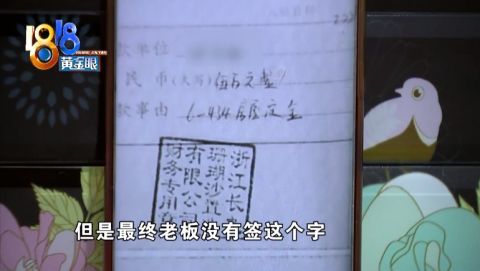 1818
黄金眼
款单位
民币(大写) 伍万元整
款事由 6-434房定金
浙江长
珊瑚沙置
有限公司
财务专用章
但是最终老板没有签这个字